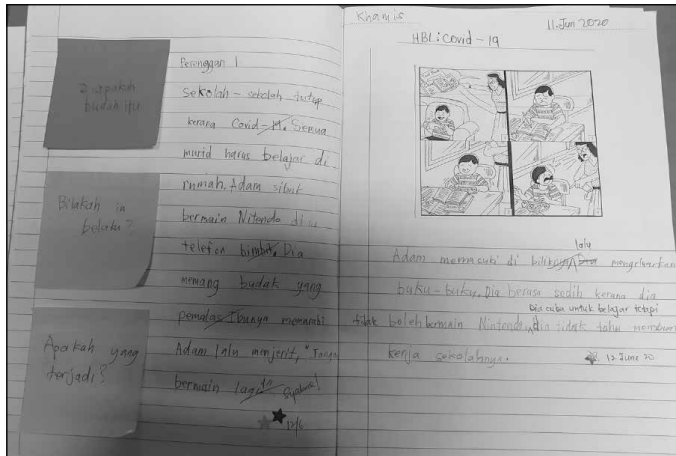 Siapakah
budak itu
Bilakah ia
berlaku?
Apakah yang
terjadi?
Perenggan 1
sekolah-sekolah tutup
kerana Covid-19. Semua
murid harus belajar di
rumah. Adam sibuk
bermain Nitendo di
telefon bimbit. Dia
memang budak yang
pemalas. Ibunya memarahi
Adam lalu menjerit, "Jangan
bermain lagi!"
12/6
Khamis
11 Jun 2020
HBL: Covid-19
lalu
Adam memasuki di bilik mengeluarkan
buku-buku. Dia berasa sedih kerana dia
Dia cuba untuk belajar tetapi
tidak boleh bermain Nintendo, dia tidak tahu membuat
kerja sekolahnya.
12 June 20